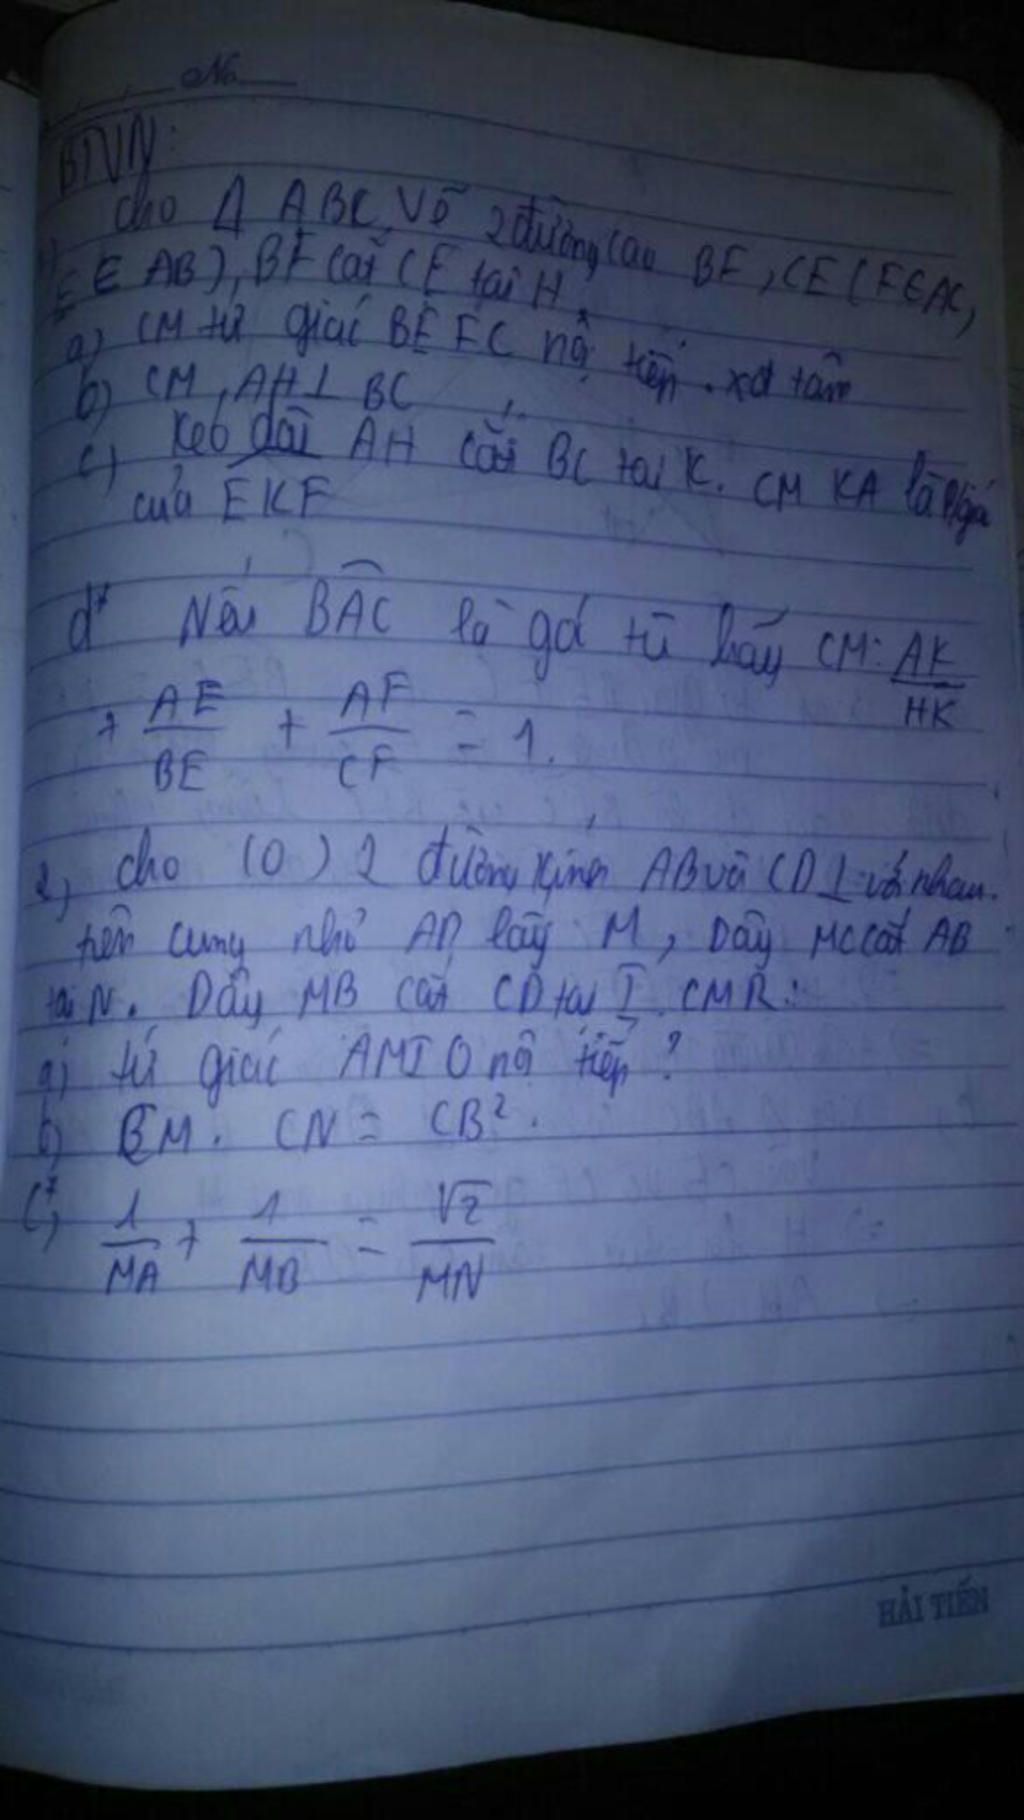 No
BTVN:
Cho Δ ABC, Vẽ 2 đường cao BF, CE (F∈AC,
E ∈ AB), BF cắt CE tại H
a) CM tứ giác BEFC nội tiếp. xđ tâm
b) CM, AH⊥BC
c) Kéo dài AH cắt BC tại K. CM KA là
của EKF
d* Nếu BÂC là góc tù hãy CM: AK/HK
+ AE/BE + AF/CF = 1.
2, Cho (O) 2 đường kính AB và CD ⊥ với nhau.
trên cung nhỏ AD lấy M, Dây MC cắt AB
tại N. Dây MB cắt CD tại I. CMR:
a) tứ giác AMIO nội tiếp?
b) CM. CN = CB².
c*, 1/MA + 1/MB = √2/MN
HẢI TIẾN